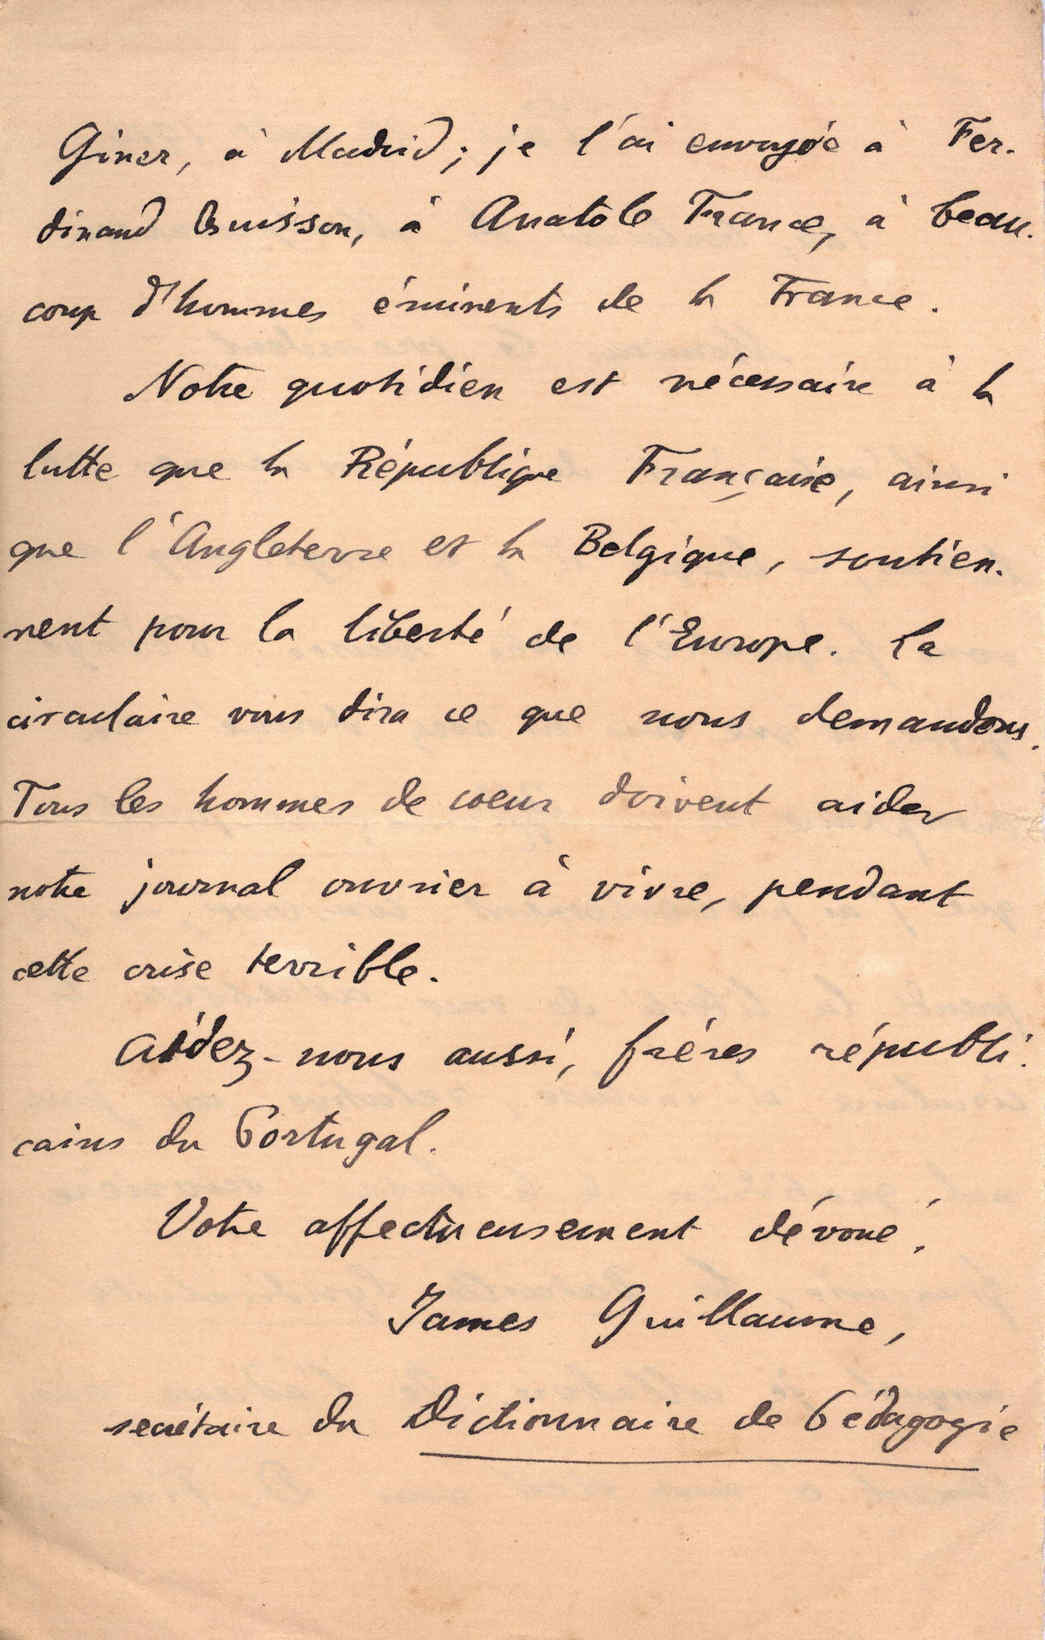 Giner, à Madrid ; je l'ai envoyée à Fer-
dinand Buisson, à Anatole France, à beau-
coup d'hommes éminents de la France.
Notre quotidien est nécessaire à la
lutte que la République Française, ainsi
que l'Angleterre et la Belgique, soutien-
nent pour la liberté de l'Europe. La
circulaire vous dira ce que nous demandons.
Tous les hommes de coeur doivent aider
notre journal ouvrier à vivre, pendant
cette crise terrible.
Aidez-nous aussi, frères républi-
cains du Portugal.
Votre affectueusement dévoué,
James Guillaume,
secrétaire du Dictionnaire de Pédagogie